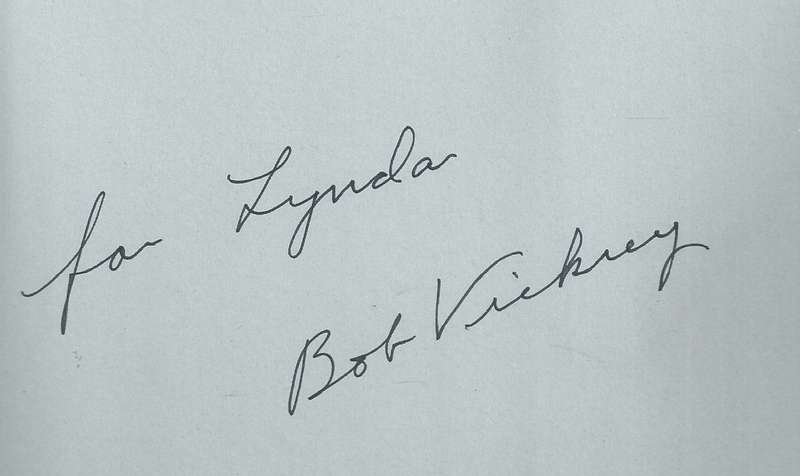 for Lynda
Bob Vickrey